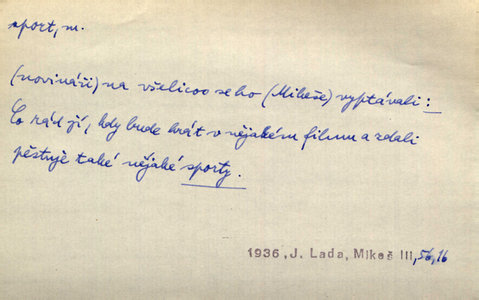 sport, m.
(novináři) na všelicos se ho (Mikeše) vyptávali:
Co rád jí, kdy bude hrát v nějakém filmu a zdali
pěstuje také nějaké sporty.
1936, J. Lada, Mikeš III, 56, 16